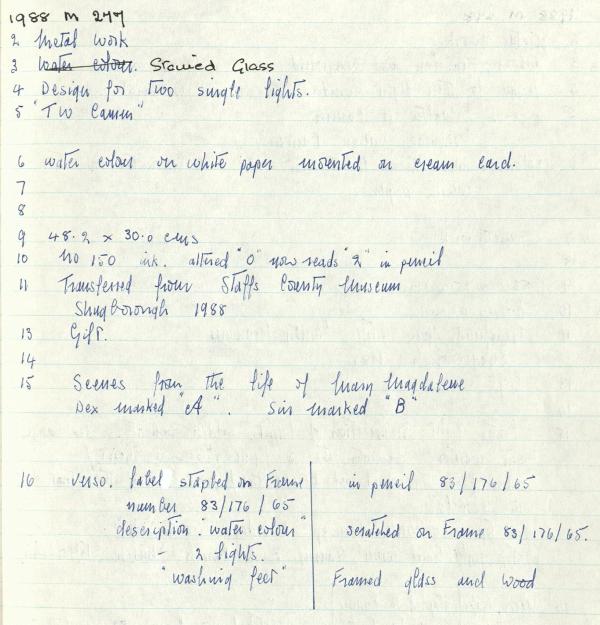 1988 M 277
2 Metal work
3 water colour. Stained Glass
4 Design for two single lights.
5 "T W Camm"
6 water colour on white paper mounted on cream card.
7
8
9 48.2 x 30.0 cms
10 No 150 ink. altered "0" now reads "2" in pencil
11 Transferred from Staffs County Museum
Shugborough 1988
13 Gift.
14
15 Scenes from the life of Mary Magdalene
Dex marked "A". Sin marked "B"
16 Verso. label stapled on Frame
number 83/176/65
description: "water colour"
- 2 lights.
"washing feet"
in pencil 83/176/65
scratched on Frame 83/176/65.
Framed glass and wood